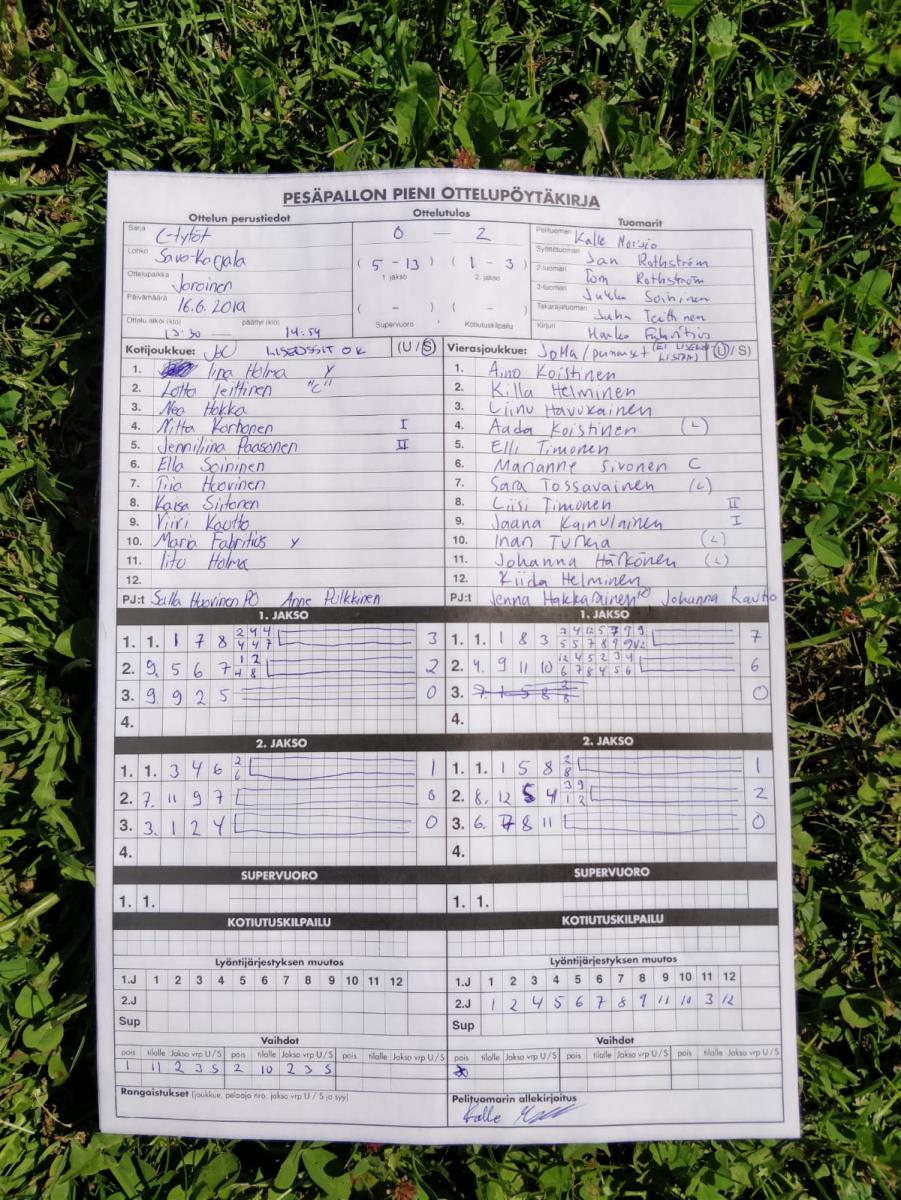 PESÄPALLON PIENI OTTELUPÖYTÄKIRJA
Ottelun perustiedot Ottelutulos Tuomarit
Sarja C-tytöt
Lohko Savo-Karjala
Ottelupaikka Joroinen
Päivämäärä 16.6. 2019
Ottelu alkoi (klo) 13:30 — päättyi (klo) 14:54
0 — 2
( 5 - 13 ) ( 1 - 3 )
1. jakso 2. jakso
( - ) ( - )
Supervuoro Kotiutuskilpailu
Pelituomari Kalle
Syöttötuomari Jan Rothström
2-tuomari Tom Rothström
3-tuomari Jukka Soininen
Takarajatuomari Juha
Kirjuri
Kotijoukkue: LISENSSIT OK (U / S)
1. Iina Holma Y
2. Lotta Teittinen "C"
3. Nea Hakka
4. Nitta Korhonen I
5. Jenniliina Paasonen II
6. Ella Soininen
7. Tiia Huovinen
8. Kaisa Siitonen
9. Viiri Kautto
10. Maria Fabritius Y
11. Iitu Holma
12.
PJ:t Salla Huovinen PO Anne Pulkkinen
Vierasjoukkue: JoMa/punaiset (U / S)
1. Aino Koistinen
2. Killa Helminen
3. Liinu Havukainen
4. Aada Koistinen (L)
5. Elli Timonen
6. Marianne Sivonen C
7. Sara Tossavainen (L)
8. Liisi Timonen II
9. Jaana Kainulainen I
10. Inan Turkia (L)
11. Johanna Härkönen (L)
12. Kiida Helminen
PJ:t Jenna Hakkarainen PO Johanna Rautio
1. JAKSO
1. 1. 1 7 8 2 4 4 3
4 4 7
2. 9. 5 6 7 1 2 2
4 8
3. 9. 9 2 5 0
4.
2. JAKSO
1. 1. 3 4 6 2 1
6
2. 7. 11 9 7 0
3. 3. 1 2 4 0
4.
SUPERVUORO
1. 1.
KOTIUTUSKILPAILU
Lyöntijärjestyksen muutos
1.J 1 2 3 4 5 6 7 8 9 10 11 12
2.J
Sup
Vaihdot
pois tilalle Jakso vrp U / S pois tilalle Jakso vrp U / S pois tilalle Jakso vrp U / S
1 11 2 3 S 2 10 2 3 S
Rangaistukset (joukkue, pelaaja nro, jakso vrp U / S ja syy)
1. JAKSO
1. 1. 1 8 3 7 4 12 5 7 9 9 7
5 5 7 8 9 9 12
2. 4. 9 11 10 12 4 5 2 3 4 6
6 7 8 4 5 6
3. 7. 1 5 8 2 0
8
4.
2. JAKSO
1. 1. 1 5 8 2 1
8
2. 8. 12 5 4 3 9 2
1 2
3. 6. 7 8 11 0
4.
SUPERVUORO
1. 1.
KOTIUTUSKILPAILU
Lyöntijärjestyksen muutos
1.J 1 2 3 4 5 6 7 8 9 10 11 12
2.J 1 2 4 5 6 7 8 9 11 10 3 12
Sup
Vaihdot
pois tilalle Jakso vrp U / S pois tilalle Jakso vrp U / S pois tilalle Jakso vrp U / S
Pelituomarin allekirjoitus
Kalle